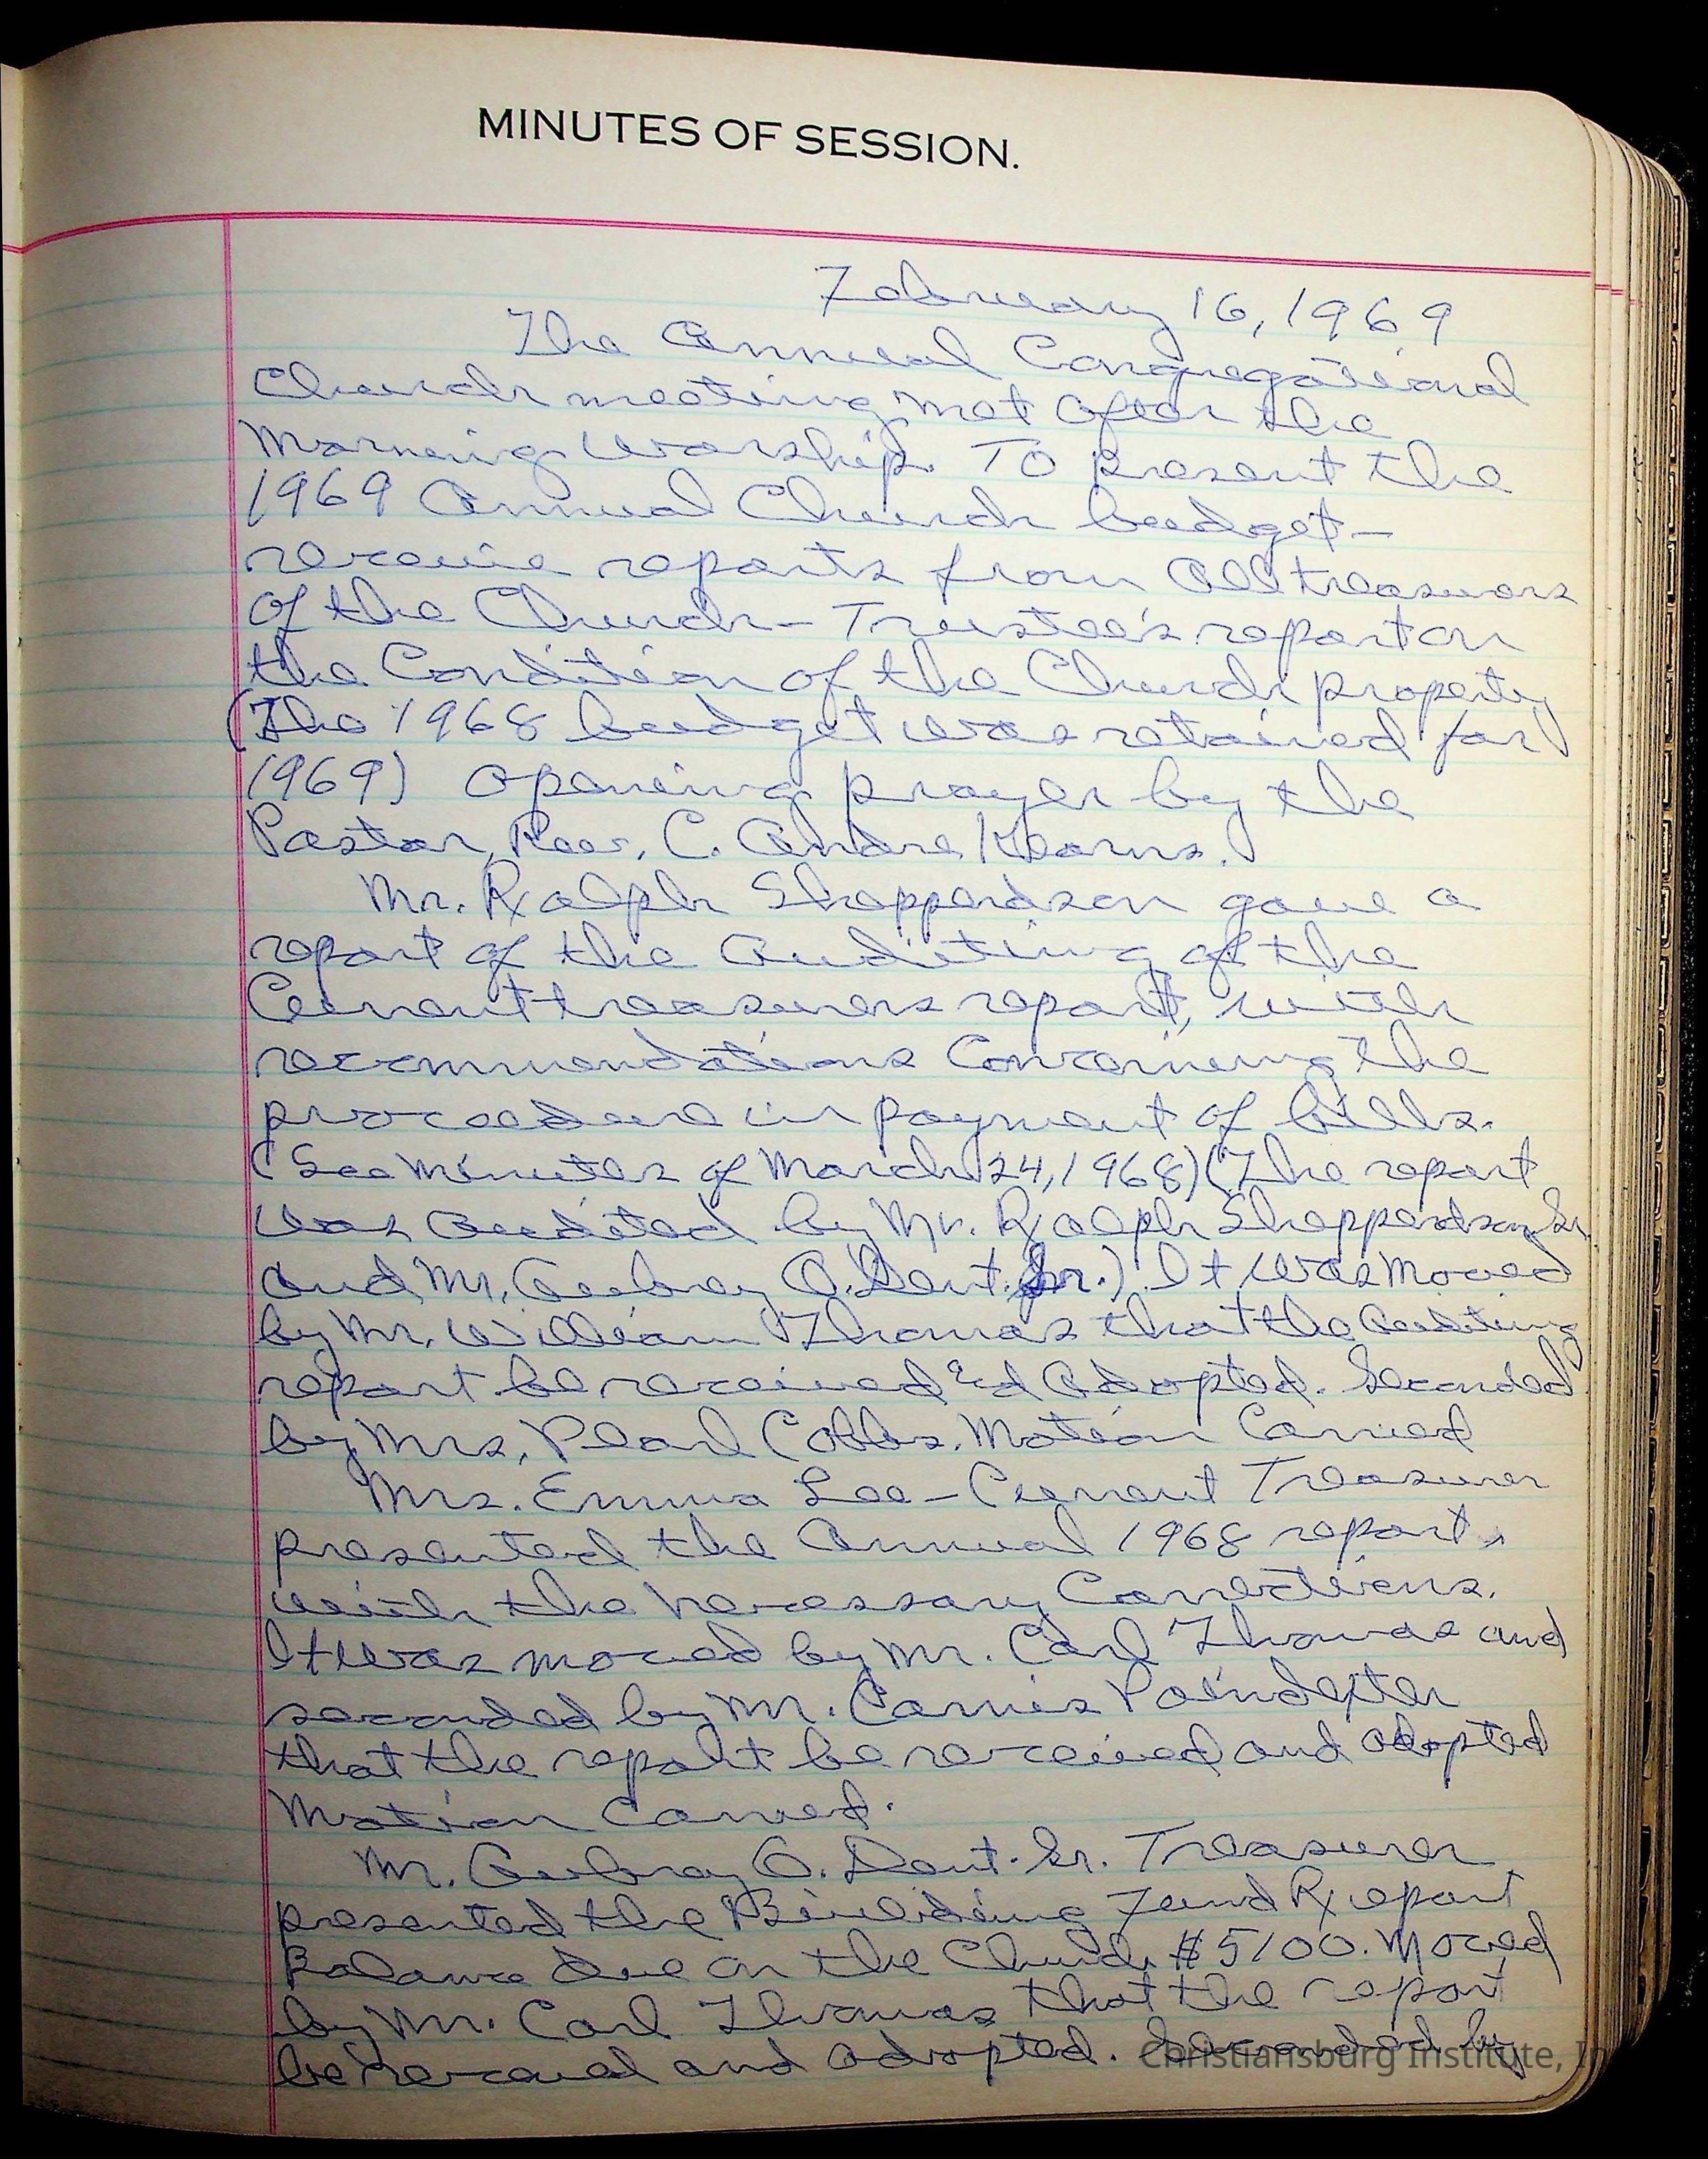 MINUTES OF SESSION.
February 16, 1969
The Annual Congregational
Church meeting met after the
Morning Worship. To present the
1969 Annual Church budget-
receive reports from all treasurers
of the Church - Trustee's report on
the Condition of the Church property
(The 1968 budget was retained for
1969) Opening prayer by the
Pastor, Rev. C. Andre Kearns.
Mr. Ralph Shepperdson gave a
report of the Auditing of the
Current treasurers report, with
recommendations Concerning the
proceedure in payment of bills.
(See Minutes of March 24, 1968) (The report
was audited by Mr. Ralph Shepperdson Sr.
and Mr. Aubrey O. Dent. Sr.) It was moved
by Mr. William Thomas that the Auditing
report be received & adopted. Seconded
by Mrs. Pearl Cobbs. Motion Carried
Mrs. Emma Lee - Current Treasurer
presented the Annual 1968 report,
with the necessary Corrections.
It was moved by Mr. Carl Thomas and
seconded by Mr. Carnis Poindexter
that the report be received and adopted
Motion Carried.
Mr. Aubrey O. Dent. Sr. Treasurer
presented the Building Fund Report
Balance due on the Church $5100. Moved
by Mr. Carl Thomas that the report
be received and adopted. Seconded by
Christiansburg Institute, In